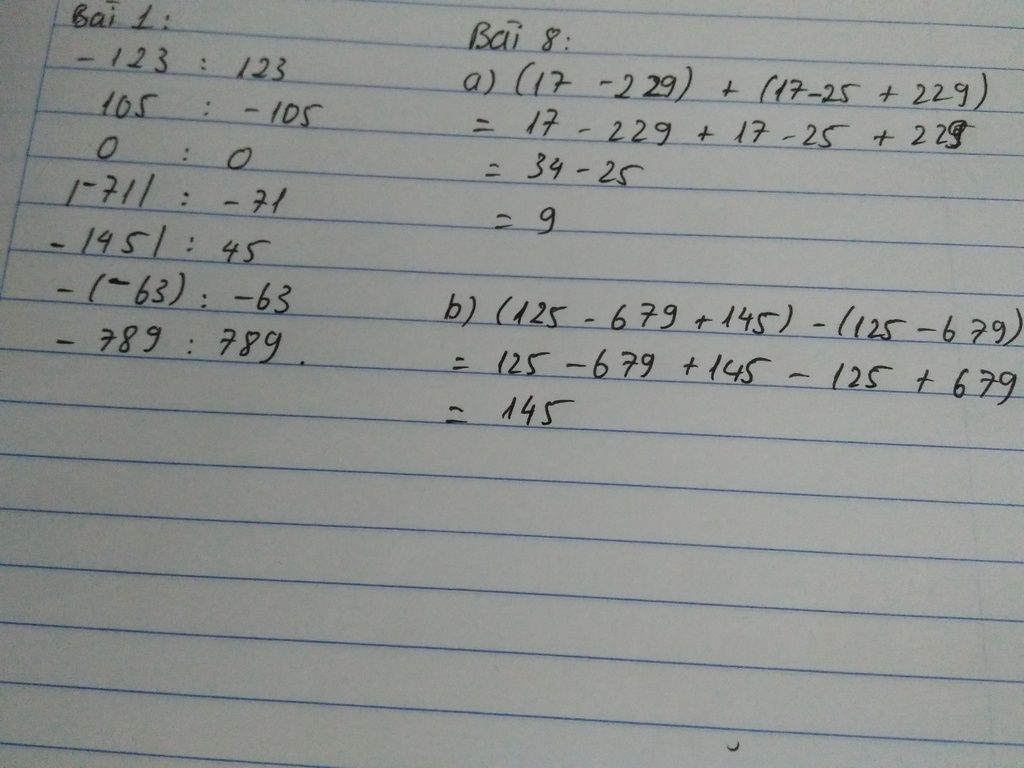 Bài 1:
- 123 : 123
105 : -105
0 : 0
|-71| : -71
- |45| : 45
- (-63) : -63
- 789 : 789.
Bài 8:
a) (17 - 229) + (17-25 + 229)
= 17 - 229 + 17 - 25 + 229
= 34 - 25
= 9
b) (125 - 679 + 145) - (125 - 679)
= 125 - 679 + 145 - 125 + 679
= 145